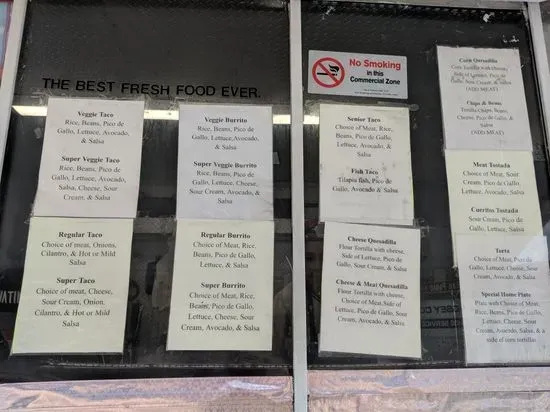 THE BEST FRESH FOOD EVER.
Veggie Taco
Rice, Beans, Pico de
Gallo, Lettuce, Avocado,
& Salsa
Super Veggie Taco
Rice, Beans, Pico de
Gallo, Lettuce, Avocado,
Salsa, Cheese, Sour
Cream, & Salsa
Veggie Burrito
Rice, Beans, Pico de
Gallo, Lettuce, Avocado,
& Salsa
Super Veggie Burrito
Rice, Beans, Pico de
Gallo, Lettuce, Cheese,
Sour Cream, Avocado,
& Salsa
Regular Taco
Choice of meat, Onions,
Cilantro, & Hot or Mild
Salsa
Super Taco
Choice of meat, Cheese,
Sour Cream, Onion,
Cilantro, & Hot or Mild
Salsa
Regular Burrito
Choice of Meat, Rice,
Beans, Pico de Gallo,
Lettuce, & Salsa
Super Burrito
Choice of Meat, Rice,
Beans, Pico de Gallo,
Lettuce, Cheese, Sour
Cream, Avocado, & Salsa
No Smoking
in this
Commercial Zone
Senior Taco
Choice of Meat, Rice,
Beans, Pico de Gallo,
Lettuce, Avocado, &
Salsa
Fish Taco
Tilapia fish, Pico de
Gallo, Avocado & Salsa
Cheese Quesadilla
Flour Tortilla with cheese,
Side of Lettuce, Pico de
Gallo, Sour Cream, & Salsa
Cheese & Meat Quesadilla
Flour Tortilla with cheese,
Choice of Meat, Side of
Lettuce, Pico de Gallo, Sour
Cream, Avocado, & Salsa
Corn Quesadilla
Corn Tortilla with cheese,
Side of Lettuce, Pico de
Gallo, Sour Cream, & Salsa
(ADD MEAT)
Chips & Beans
Tortilla Chips, Beans,
Cheese, Pico de Gallo, &
Salsa
(ADD MEAT)
Meat Tostada
Choice of Meat, Sour
Cream, Pico de Gallo,
Lettuce, & Salsa
Currito Tostado
Sour Cream, Pico de
Gallo, Lettuce, Salsa
Torta
Choice of Meat, Pico de
Gallo, Lettuce, Cheese, Sour
Cream, & Salsa
Special Home Plate
Plate with Choice of Meat,
Rice, Beans, Pico de Gallo,
Lettuce, Cheese, Sour
Cream, Avocado, Salsa, & a
side of corn tortillas